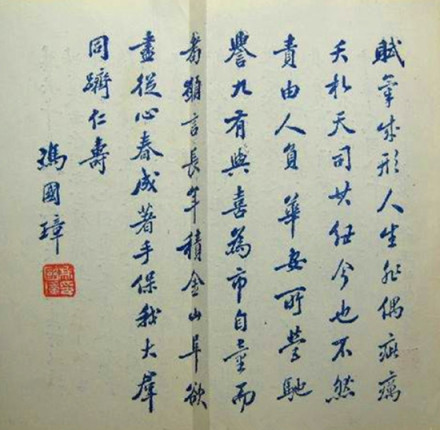 賦氣成形人生非偶疵癘
夭札天司其任今也不然
責由人負華安所營馳
譽九有與喜為市自童而
耆願言長年積金山阜欲
盡從心春成著手保我大羣
同躋仁壽
馮國璋